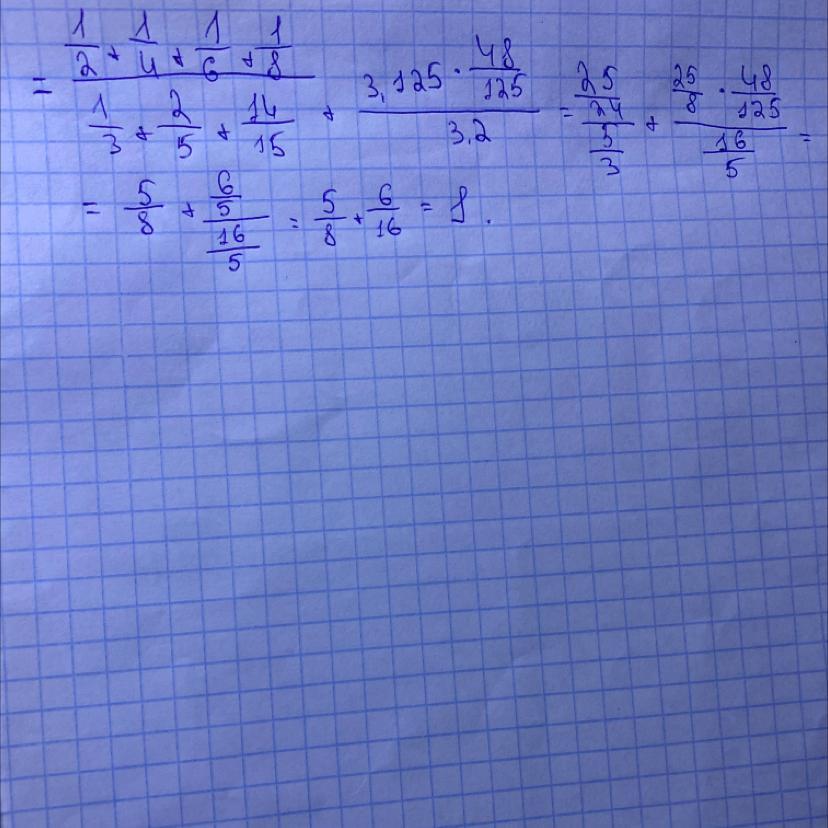 = (1/2 + 1/4 + 1/6 + 1/8) / (1/3 + 2/5 + 14/15) + (3,125 · 48/125) / 3,2 = (25/24) / (5/3) + (25/8 · 48/125) / (16/5) =
= 5/8 + (6/5) / (16/5) = 5/8 + 6/16 = 1.